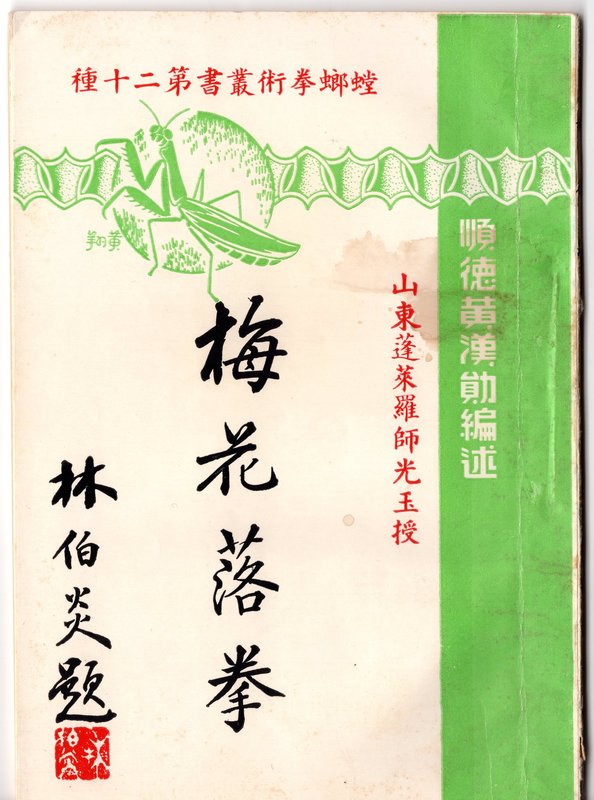 螳螂拳術叢書第二十種
順德黃漢勛編述
山東蓬萊羅師光玉授
黃翔
梅花落拳
林伯炎題
林伯炎